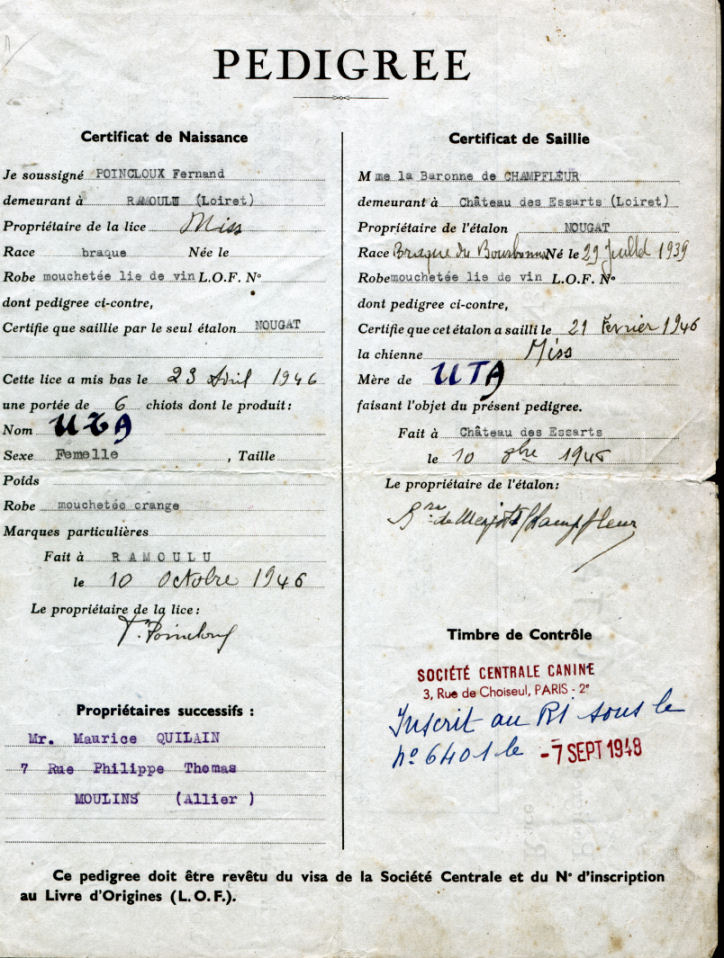 PEDIGREE
Certificat de Naissance
Je soussigné POINCLOUX Fernand
demeurant à RAMOULU (Loiret)
Propriétaire de la lice Miss
Race braque Née le
Robe mouchetée lie de vin L.O.F. Nº
dont pedigree ci-contre,
Certifie que saillie par le seul étalon NOUGAT
Cette lice a mis bas le 23 Avril 1946
une portée de 6 chiots dont le produit :
Nom UTA
Sexe Femelle , Taille
Poids
Robe mouchetée orange
Marques particulières
Fait à RAMOULU
le 10 Octobre 1946
Le propriétaire de la lice :
F. Poincloux
Propriétaires successifs :
Mr. Maurice QUILAIN
7 Rue Philippe Thomas
MOULINS (Allier )
Certificat de Saillie
Mme la Baronne de CHAMPFLEUR
demeurant à Château des Essarts (Loiret)
Propriétaire de l'étalon NOUGAT
Race Braque du Bourbonnais Né le 29 Juillet 1939
Robe mouchetée lie de vin L.O.F. Nº
dont pedigree ci-contre,
Certifie que cet étalon a sailli le 21 Février 1946
la chienne Miss
Mère de UTA
faisant l'objet du présent pedigree.
Fait à Château des Essarts
le 10 obre 1946
Le propriétaire de l'étalon :
Champfleur
Timbre de Contrôle
SOCIÉTÉ CENTRALE CANINE
3, Rue de Choiseul, PARIS - 2e
Inscrit au RI sous le
nº 6401 le -7 SEPT 1948
Ce pedigree doit être revêtu du visa de la Société Centrale et du Nº d'inscription
au Livre d'Origines (L.O.F.).